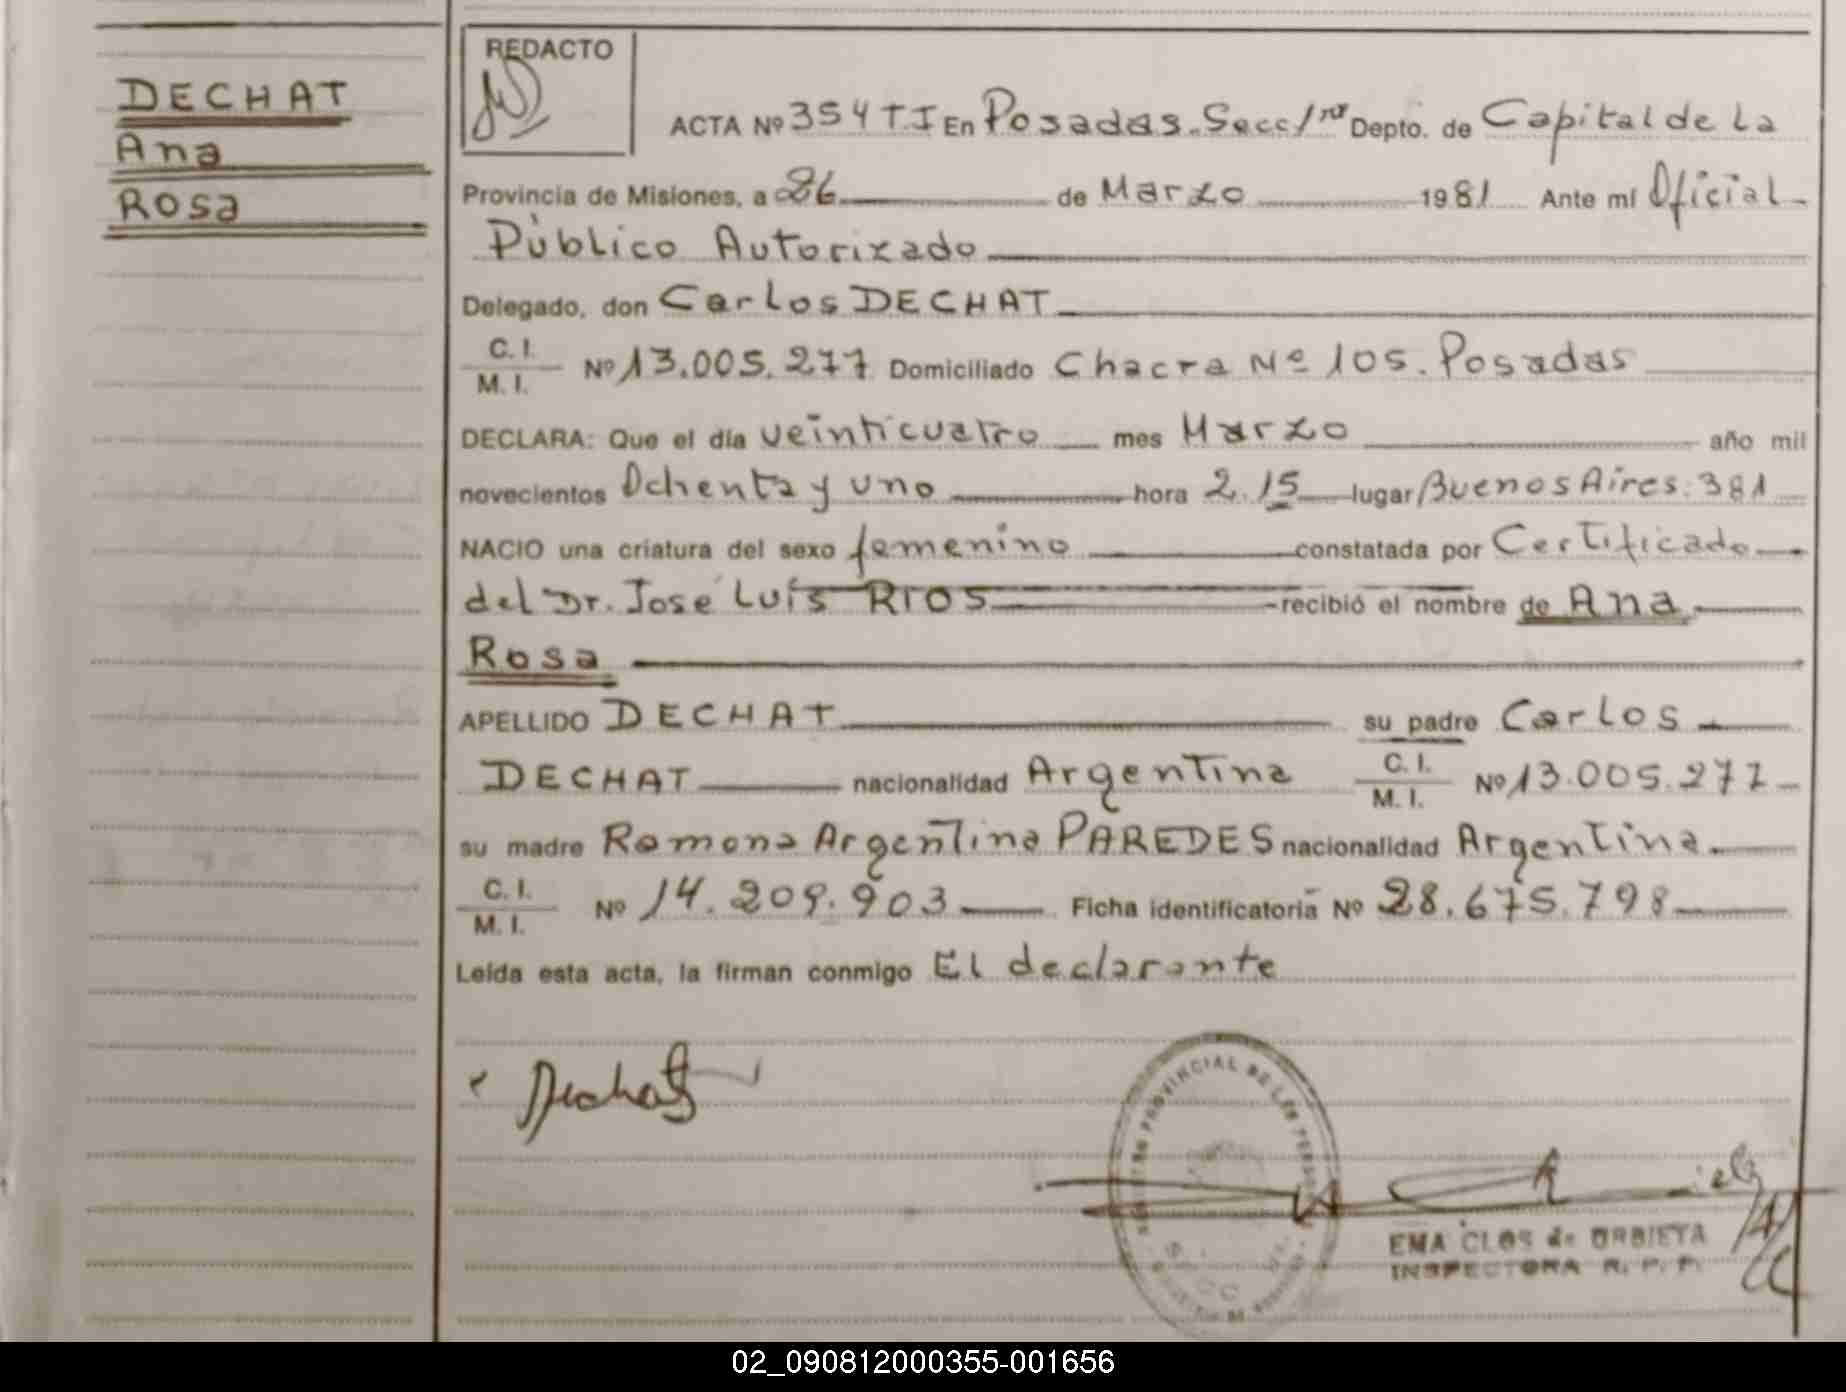 DECHAT
Ana
Rosa
REDACTO
ACTA Nº 354 T I En Posadas. Secc 1ra Depto. de Capital de La
Provincia de Misiones, a 26 de Marzo 1981 Ante mí Oficial
Público Autorizado
Delegado, don Carlos DECHAT
C. I.
M. I. Nº 13.005.277 Domiciliado Chacra Nº 105. Posadas
DECLARA: Que el día veinticuatro mes Marzo año mil
novecientos Ochenta y uno hora 2.15 lugar Buenos Aires: 381
NACIO una criatura del sexo femenino constatada por Certificado
del Dr. José Luís RIOS recibió el nombre de Ana
Rosa
APELLIDO DECHAT su padre Carlos
DECHAT nacionalidad Argentina C. I. M. I. Nº 13.005.277
su madre Ramona Argentina PAREDES nacionalidad Argentina.
C. I.
M. I. Nº 14.209.903 Ficha identificatoria Nº 28.675.798
Leída esta acta, la firman conmigo El declarante
Dechat
PROVINCIAL DE LAS PERSONAS
EMA CLOS de URBIETA
INSPECTORA R. P. P.
02_090812000355-001656